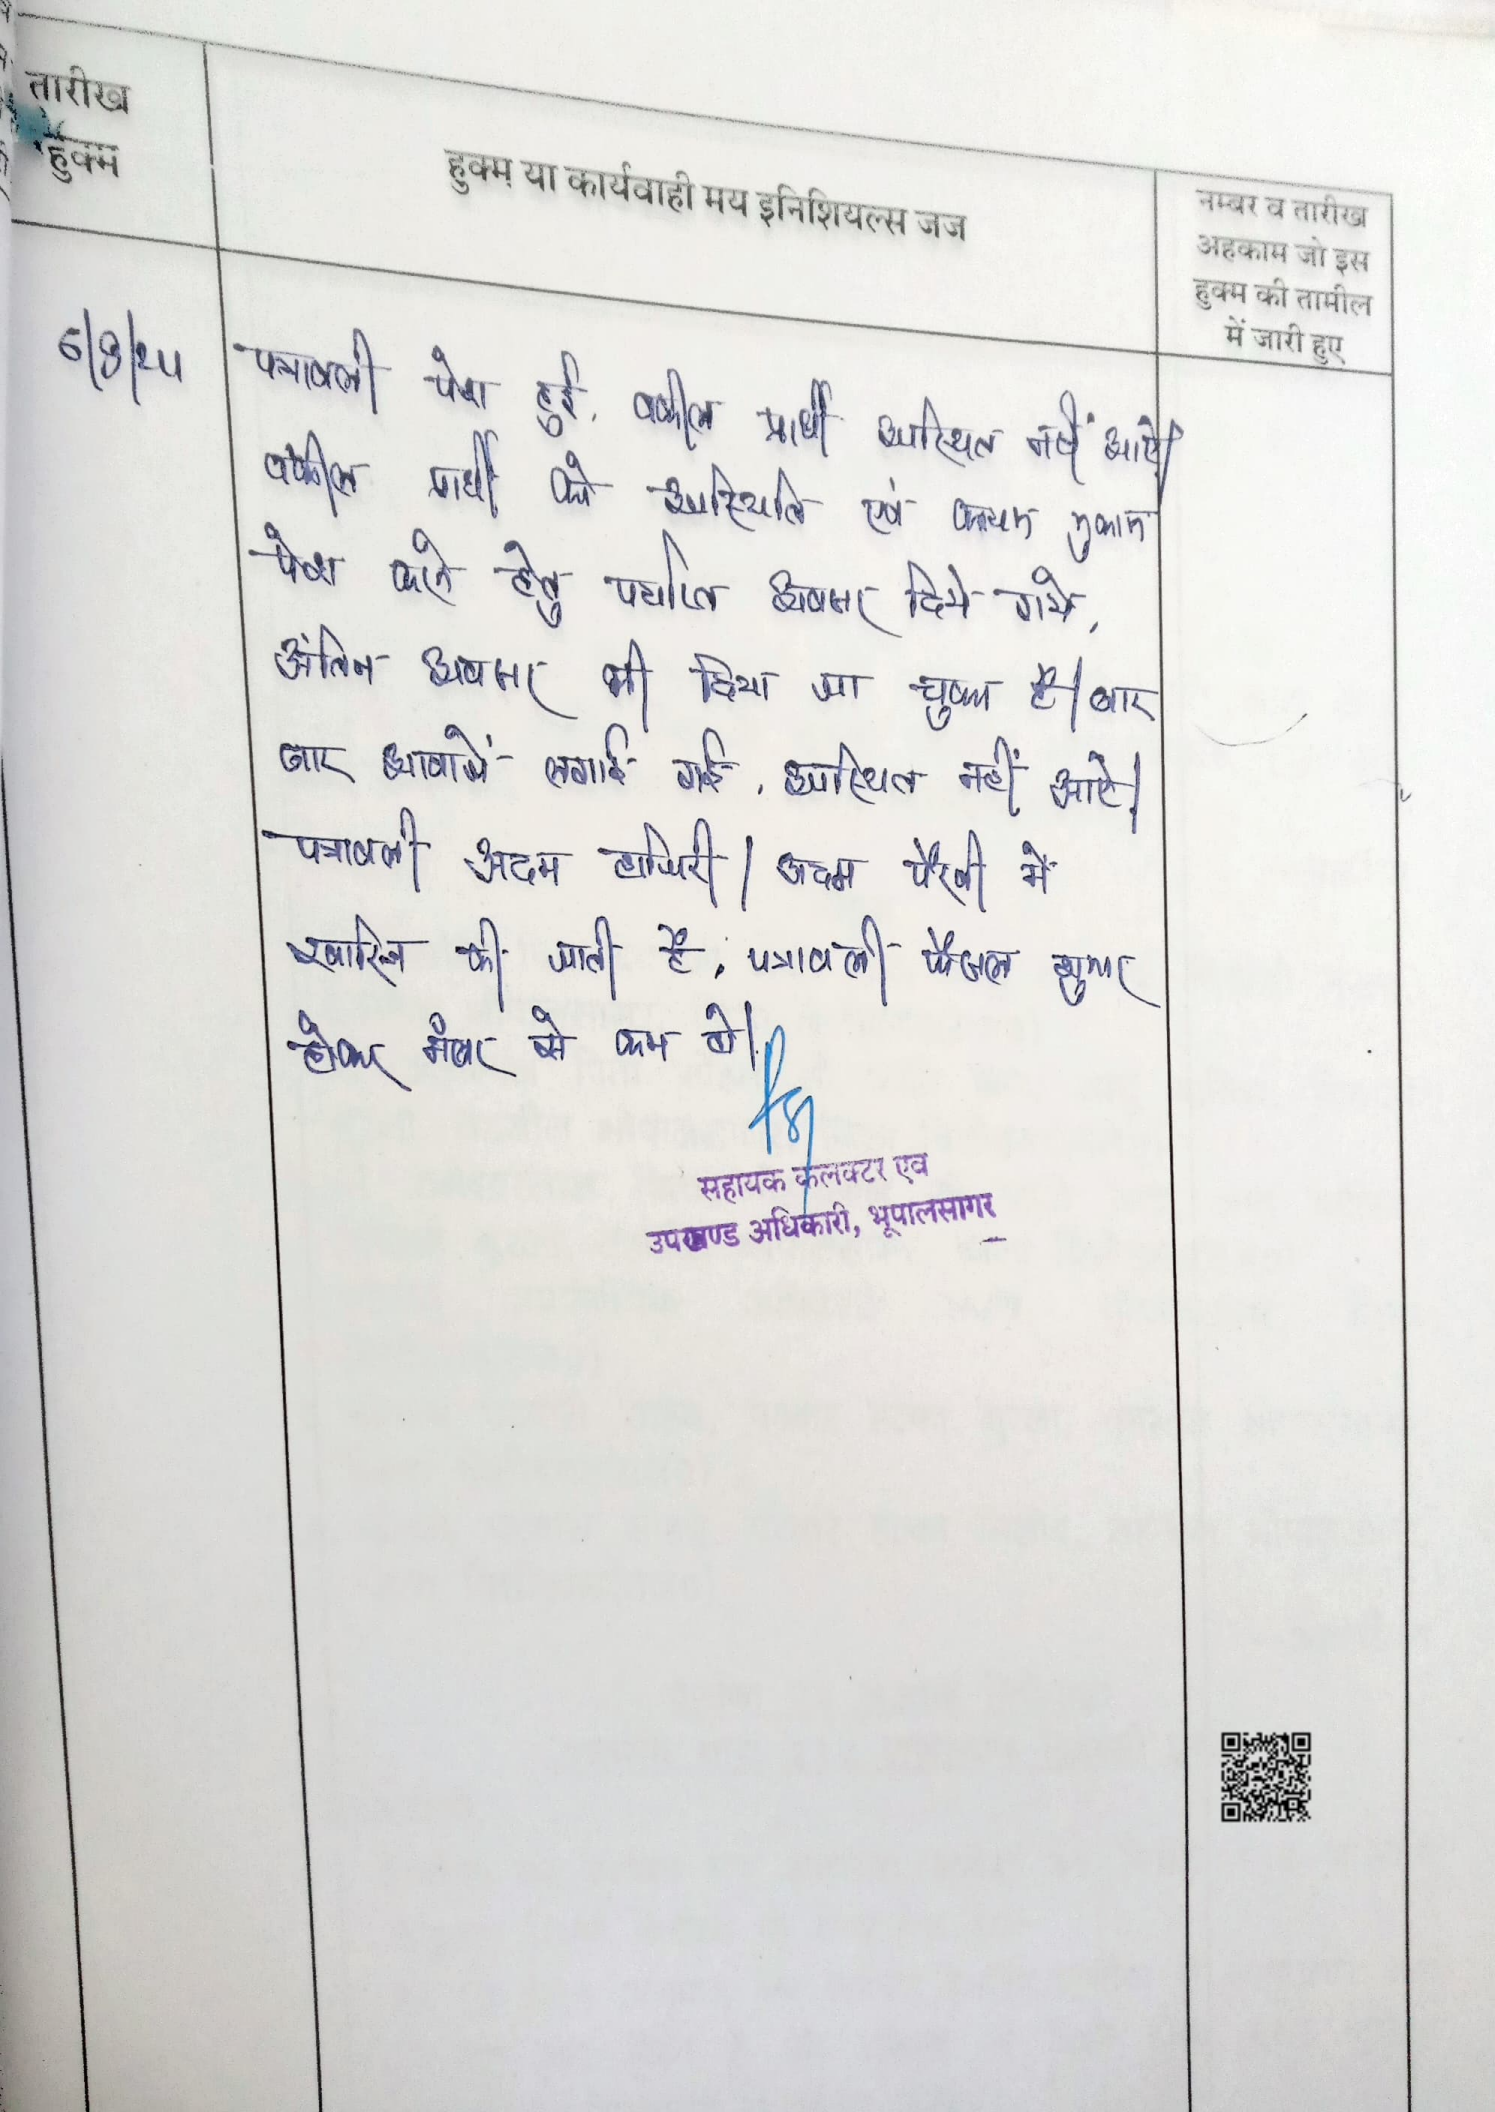 तारीख
हुक्म
हुक्म या कार्यवाही मय इनिशियल्स जज
नम्बर व तारीख
अहकाम जो इस
हुक्म की तामील
में जारी हुए
पत्रावली पेश हुई, वकील प्रार्थी उपस्थित नहीं आये।
वकील प्रार्थी को उपस्थिति एवं कायम मुकाम
पेश करने हेतु पर्याप्त अवसर दिये गये,
अंतिम अवसर भी दिया जा चुका है। बार
बार आवाजें लगाई गई, उपस्थित नहीं आये।
पत्रावली अदम हाजिरी / अदम पैरवी में
खारिज की जाती है, पत्रावली फैसल शुमार
होकर नंबर से कम हो।
सहायक कलक्टर एव
उपखण्ड अधिकारी, भूपालसागर